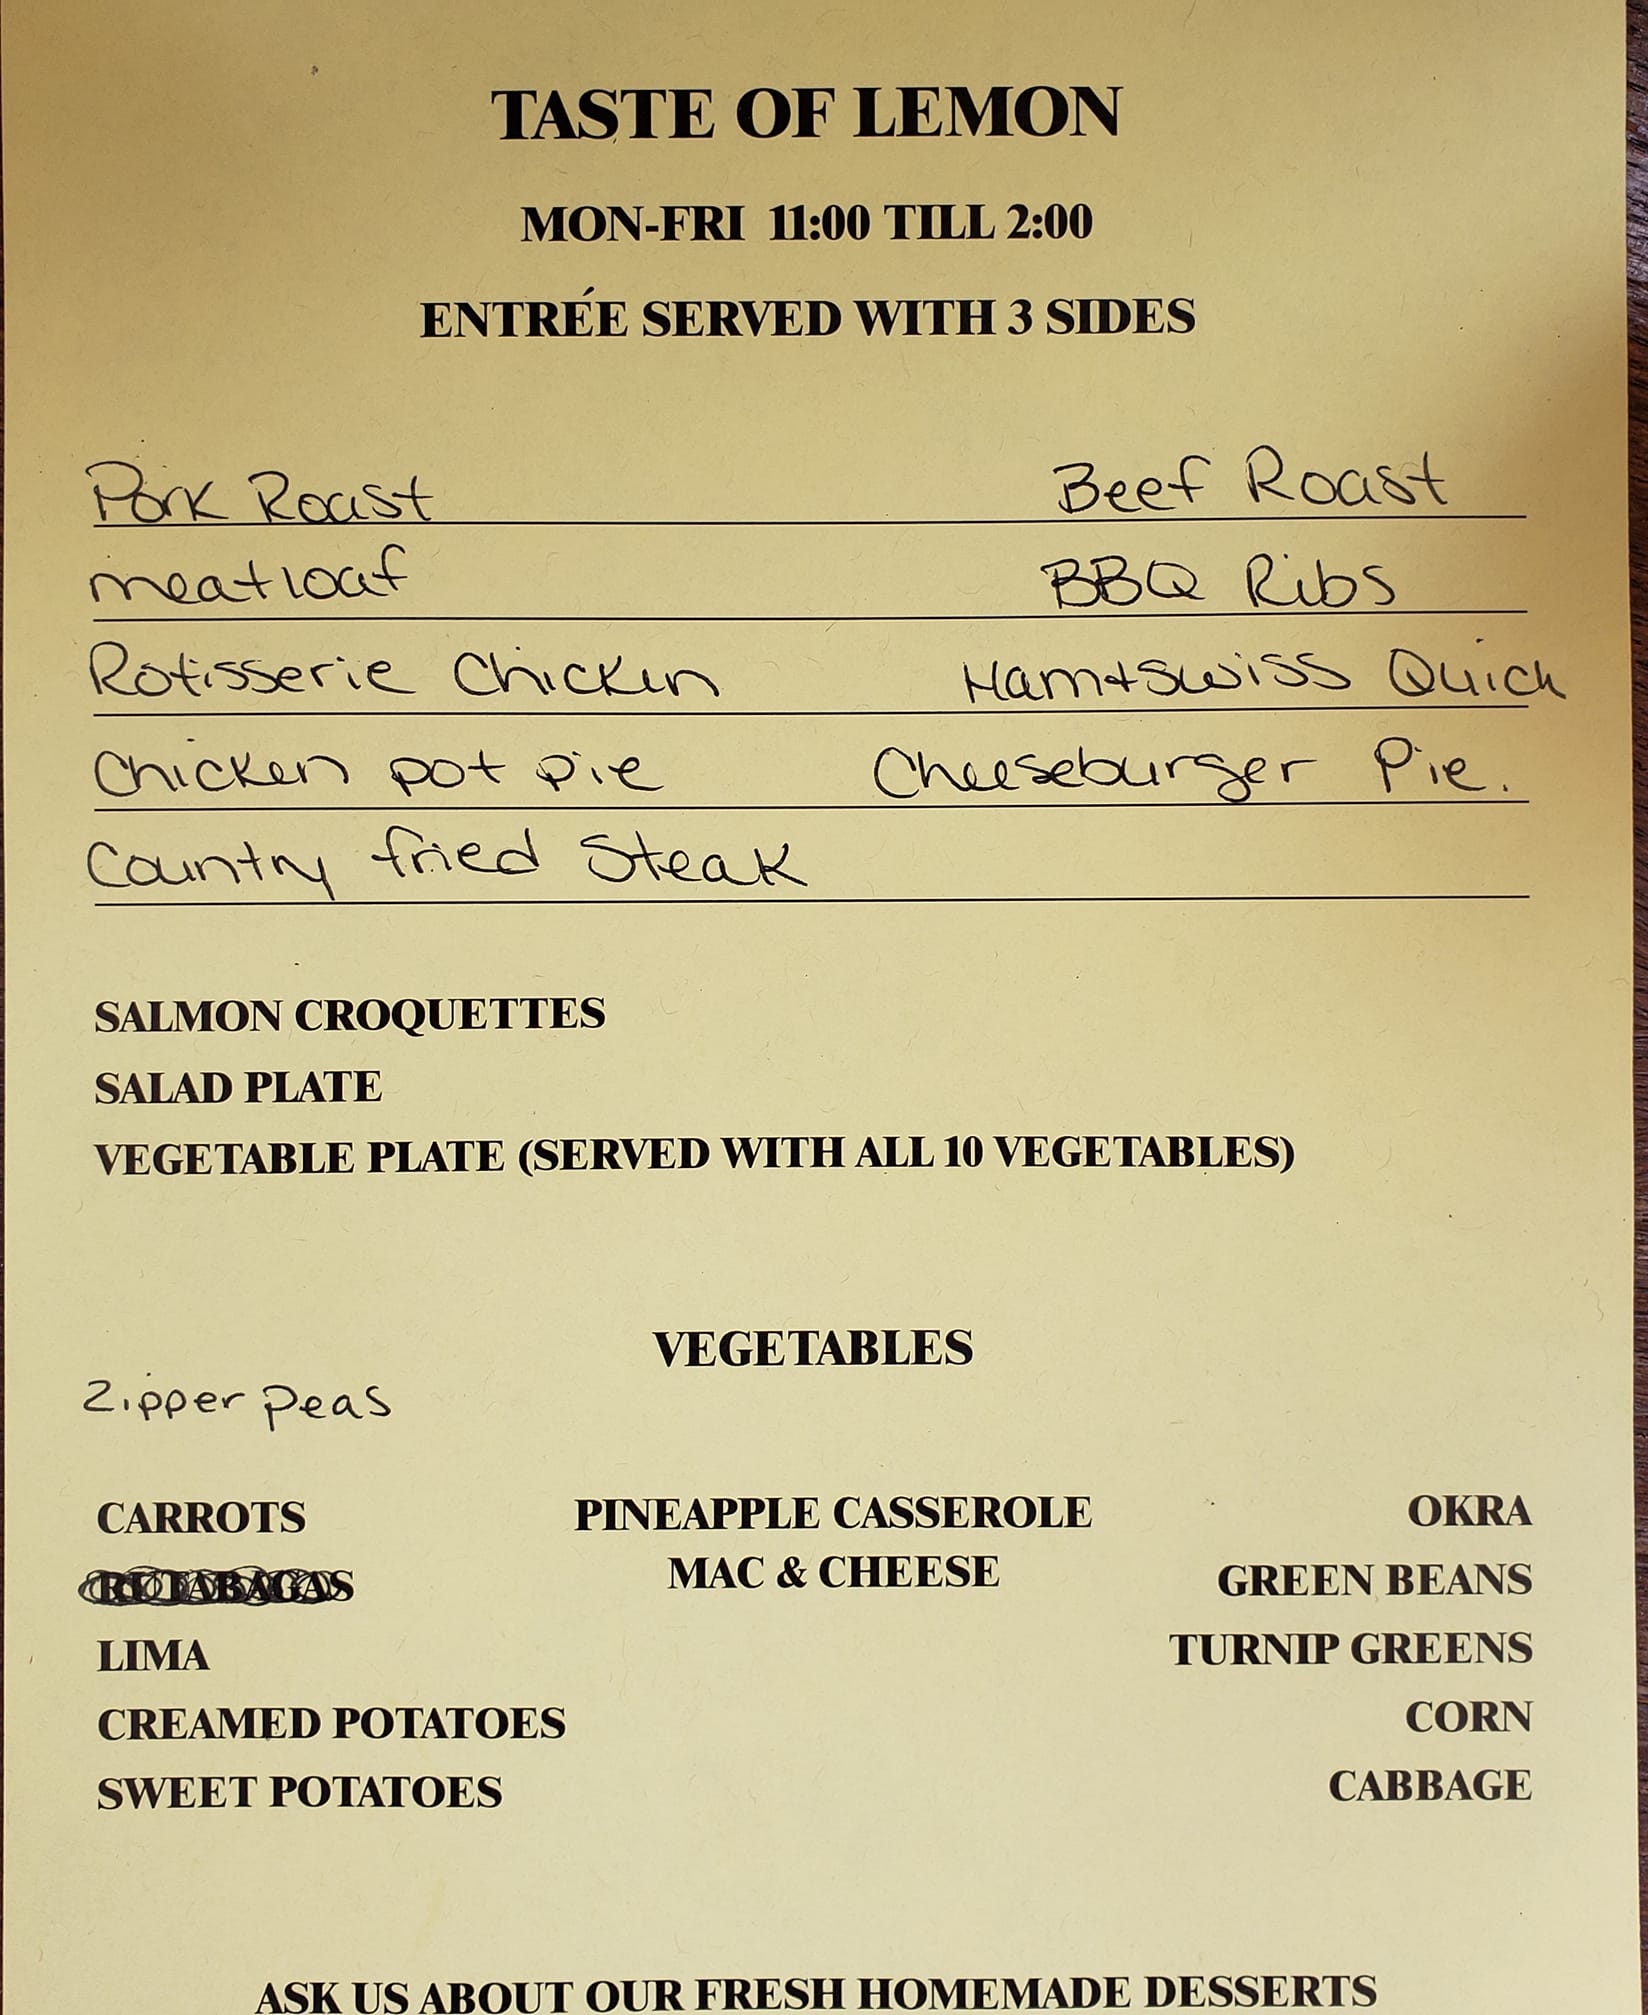 TASTE OF LEMON
MON-FRI 11:00 TILL 2:00
ENTRÉE SERVED WITH 3 SIDES
Pork Roast Beef Roast
meatloaf BBQ Ribs
Rotisserie Chicken Ham+Swiss Quich
Chicken pot pie Cheeseburger Pie.
Country fried Steak
SALMON CROQUETTES
SALAD PLATE
VEGETABLE PLATE (SERVED WITH ALL 10 VEGETABLES)
VEGETABLES
Zipper Peas
CARROTS PINEAPPLE CASSEROLE OKRA
RUTABAGAS MAC & CHEESE GREEN BEANS
LIMA TURNIP GREENS
CREAMED POTATOES CORN
SWEET POTATOES CABBAGE
ASK US ABOUT OUR FRESH HOMEMADE DESSERTS